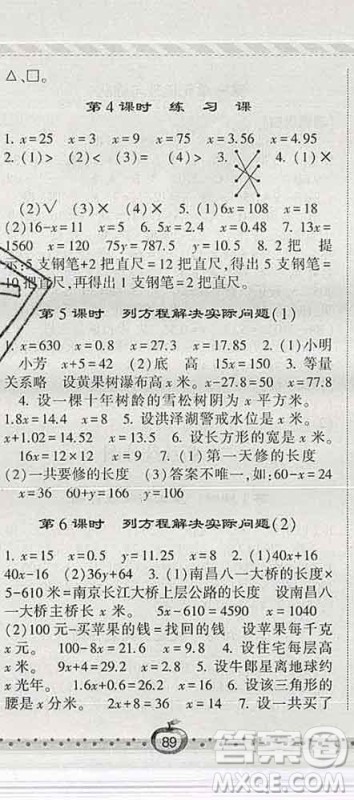 △、□。
第 4 课时 练 习 课
1. x=25 x=3 x=9 x=75 x=3.56 x=4.95
2. (1)> (2)< (3)= (4)> 3. 4. (1)×
(2)√ (3)× 5. (1)6x=108 x=18
(2)16-x=11 x=5 6. 5x=2.4 x=0.48 7. 13x=
1560 x=120 75y=787.5 y=10.5 8. 2 把 提
示:5 支钢笔+2 把直尺=12 把直尺,得出 5 支钢笔=
10 把直尺,再得出 1 支钢笔=2 把直尺。
第 5 课时 列方程解决实际问题(1)
1. x=630 x=0.8 x=27.3 x=17.5 2. (1)小明
小芳 x+5=43 (2)底 高 150 3. 等量
关系略 设黄果树瀑布高 x 米。 x-30=47.8 x=77.8
4. 设一棵十年树龄的雪松树阴为 x 平方米。
1.8x=14.4 x=8 5. 设洪泽湖警戒水位是 x 米。
x+1.02=14.52 x=13.5 6. 设长方形的宽是 x 米。
16x=192 x=12 7. (1)第一天修的长度
(2)一共要修的长度 (3)答案不唯一,如:60-x=24
x=36 60+y=126 y=66
第 6 课时 列方程解决实际问题(2)
1. x=15 x=0.5 y=11.25 x=8 2. (1)40x+16
40x-16 (2)36y+64 3. (1)南昌八一大桥的长度×
5-610 米=南京长江大桥上层公路的长度 设南昌
八一大桥长 x 米。 5x-610=4590 x=1040
(2)100 元-买苹果的钱=找回的钱 设苹果每千克
x 元。 100-5x=60.5 x=7.9 4. 设住宅每层高
x 米。 9x+4=29.2 x=2.8 5. 设牛郎星离地球约
x 光年。 1.6x+0.4=26 x=16 6. 设该三角形的
腰是 x 米。 2x+8=36 x=14 7. 设一共买了
89
答案圈
MXQE.COM